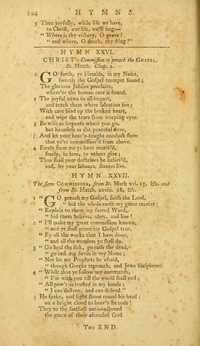 104 HYMNS.
5 Then joyfully, while life we have,
to Christ, our life, we'll sing—
" Where is thy victory, O grave?
" and where, O death, thy sting?"
HYMN XXVI.
CHRIST's Commission to preach the Gospel,
St. Mark.
GO forth, ye Heralds, in my Name,
the Gospel trumpet sound;
The glorious Jubilee proclaim,
where'er the human race is found.
2 The joyful news to all impart,
and teach them where salvation lies;
With care bind up the broken heart,
and wipe the tears from weeping eyes.
3 Be wise as serpents where you go,
but harmless as the peaceful dove,
And let your heav'n-taught conduct show
that ye're commission'd from above.
4 Freely from me ye have receiv'd,
freely, in love, to others give;
Thus shall your doctrines be believ'd,
and, by your labours, sinners live.
HYMN XXVII.
The same COMMISSION, from St. Mark xvi. 15, &c. and
St. Matth. xxviii. 18, &c.
" GO preach my Gospel, saith the Lord,
" bid the whole earth my grace receive;
" Explain to them my sacred Word,
" bid them believe, obey, and live!
2 " I'll make my great commission known,
" and ye shall prove my Gospel true,
" By all the works that I have done,
" and all the wonders ye shall do.
3 " Go heal the sick, go raise the dead,
" go cast out devils in my Name;
" Nor let my Prophets be afraid,
" though Greeks reproach, and Jews blaspheme.
4 " While thus ye follow my commands,
" I'm with you till the world shall end;
" All pow'r is trusted in my hands;
" I can destroy, and can defend."
5 He spake, and light shone round his head;
on a bright cloud to heav'n he rode;
They to the farthest nations spread
the grace of their ascended God.
The END.